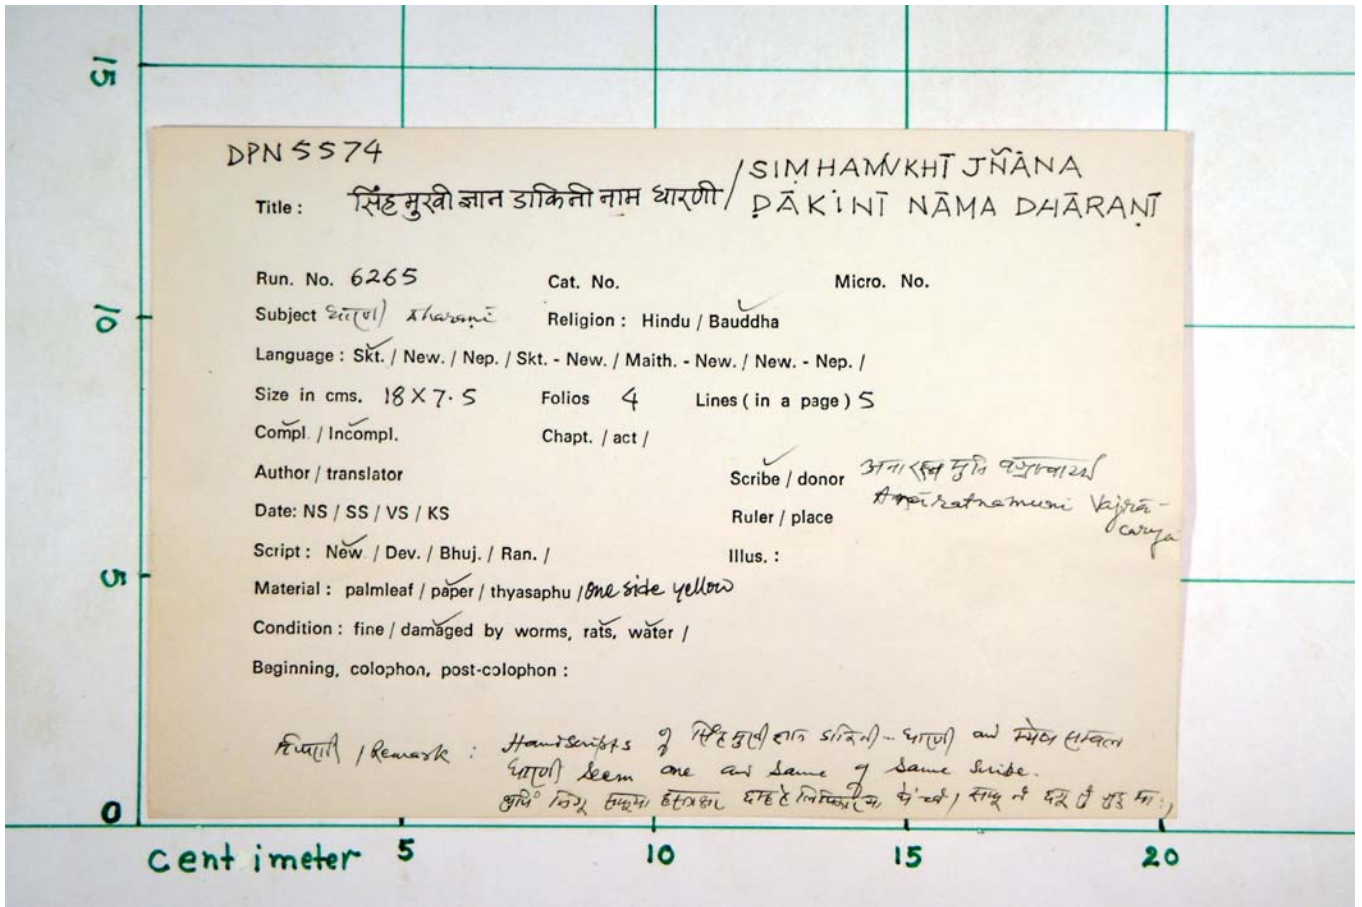 15
DPN 5574
Title : सिंहमुखी ज्ञान डाकिनी नाम धारणी / SIṂHAMUKHĪ JÑĀNA
ḌĀKINĪ NĀMA DHĀRAṆĪ
Run. No. 6265 Cat. No. Micro. No.
10
Subject धारणी dharani Religion : Hindu / Bauddha
Language : Skt. / New. / Nep. / Skt. - New. / Maith. - New. / New. - Nep. /
Size in cms. 18 X 7.5 Folios 4 Lines ( in a page ) 5
Compl. / Incompl. Chapt. / act /
Author / translator Scribe / donor मुनि वज्राचार्य
ratnamuni Vajra-
carya
Date: NS / SS / VS / KS Ruler / place
Script : New / Dev. / Bhuj. / Ran. / Illus. :
5
Material : palmleaf / paper / thyasaphu / one side yellow
Condition : fine / damaged by worms, rats, water /
Beginning, colophon, post-colophon :
टिप्पणी / Remark : Handscripts of सिंहमुखी ज्ञान डाकिनी... धारणी and
धारणी seem one and same of same scribe.
0
centimeter 5 10 15 20